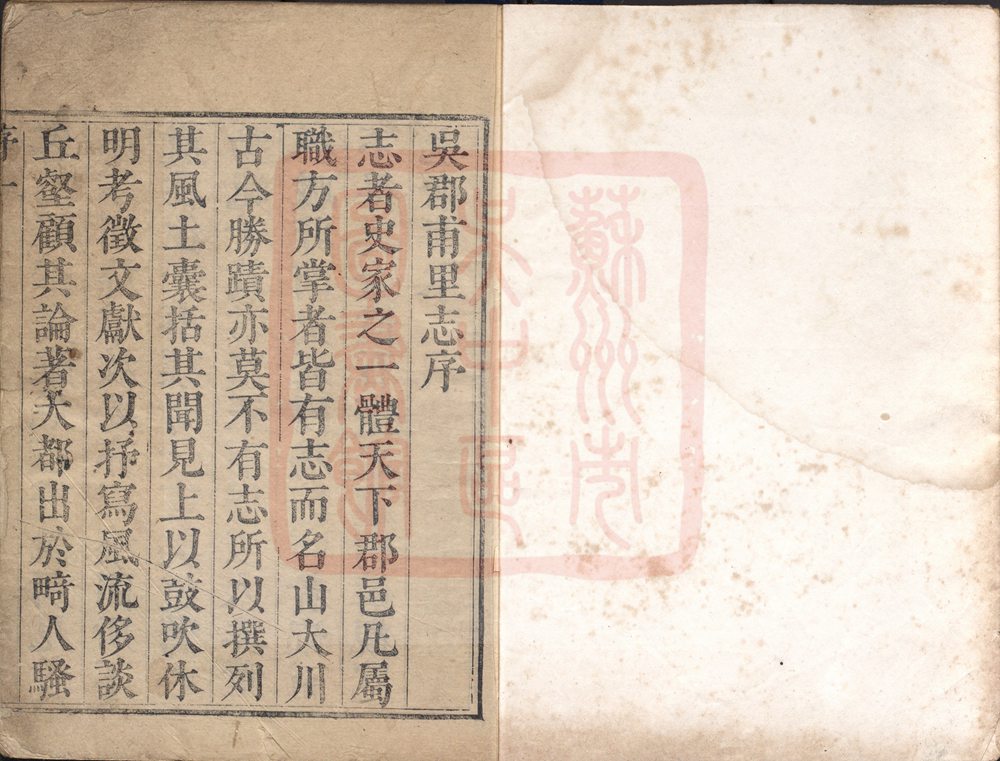 吳郡甫里志序
志者史家之一體天下郡邑凡屬
職方所掌者皆有志而名山大川
古今勝蹟亦莫不有志所以撰列
其風土囊括其聞見上以鼓吹休
明考徵文獻次以抒寫風流侈談
丘壑顧其論著大都出於畸人騷
序一
蘇州市
吳中區
圖書館